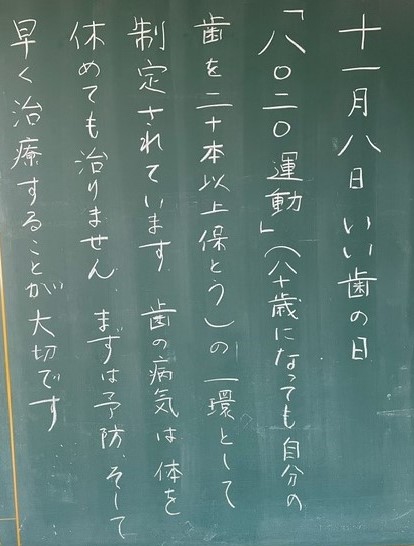 十一月八日 いい歯の日
「八〇二〇運動」(八十歳になっても自分の
歯を二十本以上保とう)の一環として
制定されています。歯の病気は体を
休めても治りません。まずは予防、そして
早く治療することが大切です